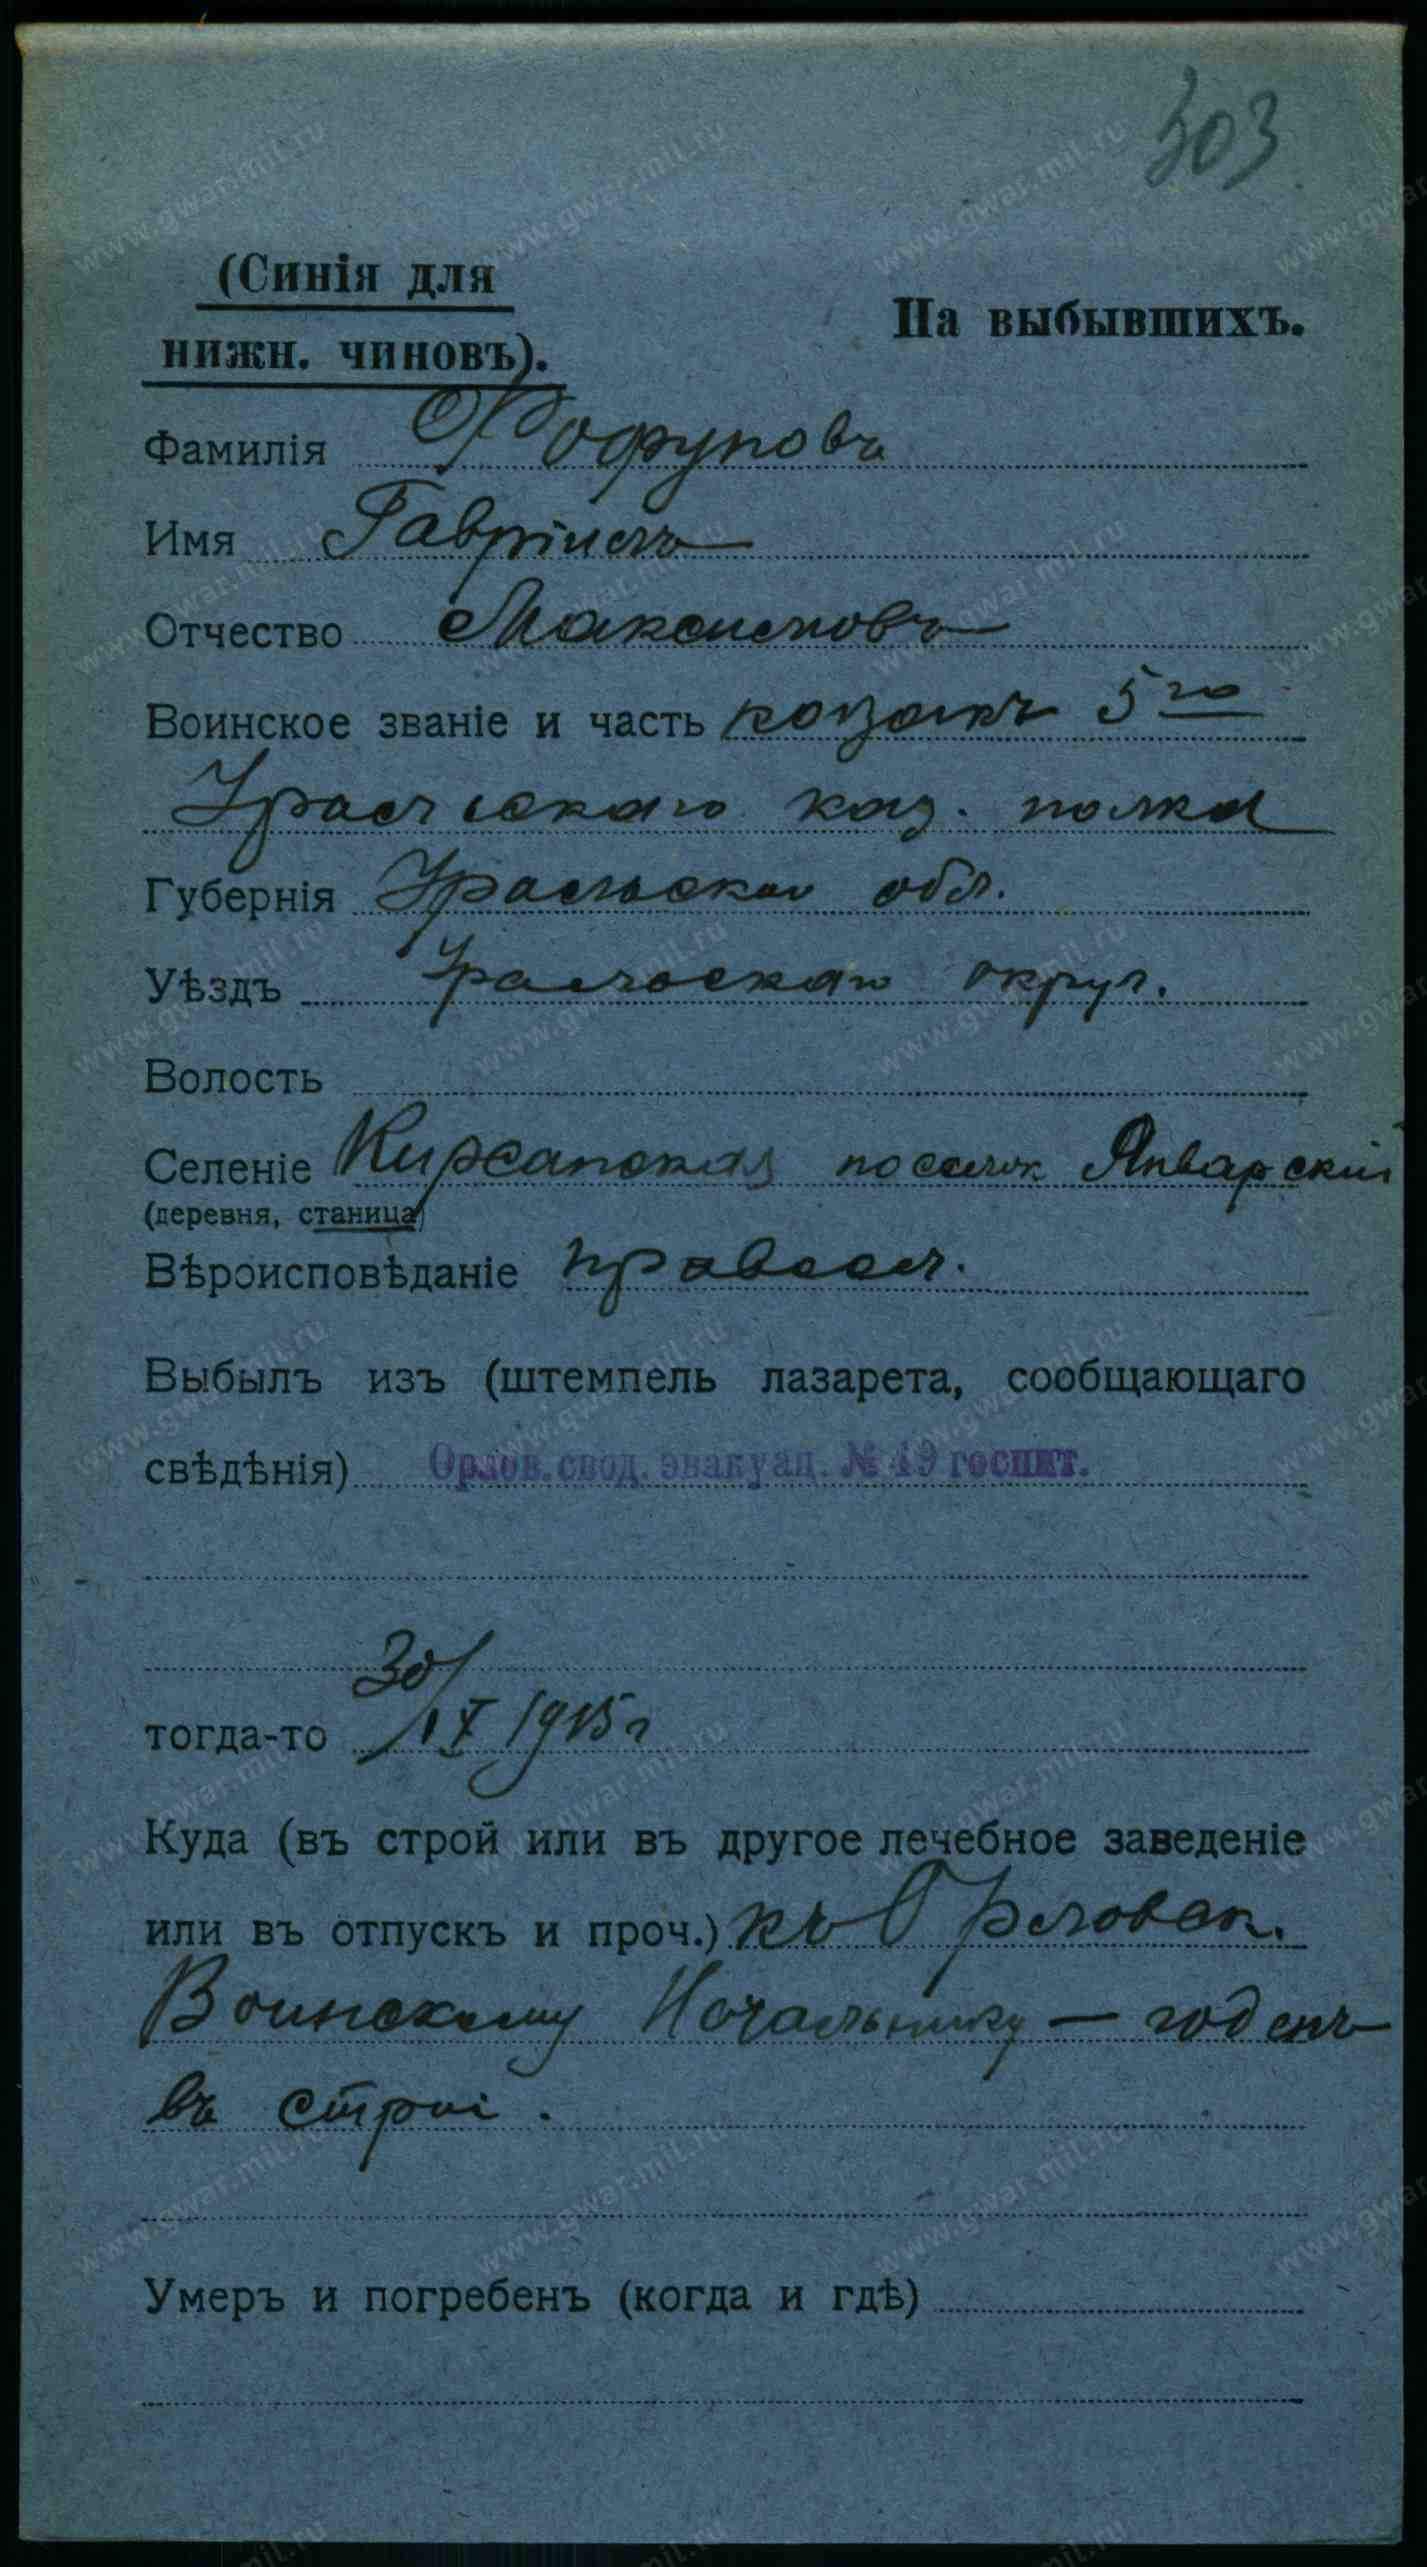 303
(Синія для
нижн. чиновъ).
На выбывшихъ.
Фамилія Фофуновъ
Имя Гавріилъ
Отчество Максимовъ
Воинское званіе и часть козакъ 5го
Уральскаго каз. полка
Губернія Уральская обл.
Уѣздъ Уральскаго округ.
Волость
Селеніе Кирсанская поселок Январскій
(деревня, станица)
Вѣроисповѣданіе правосл.
Выбылъ изъ (штемпель лазарета, сообщающаго
свѣдѣнія) Орлов. свод. эвакуац. № 19 госпит.
тогда-то 30/IX 1915 г
Куда (въ строй или въ другое лечебное заведеніе
или въ отпускъ и проч.) къ Орловск.
Воинскому Начальнику — годенъ
въ строй.
Умеръ и погребенъ (когда и гдѣ)
www.gwar.mil.ru